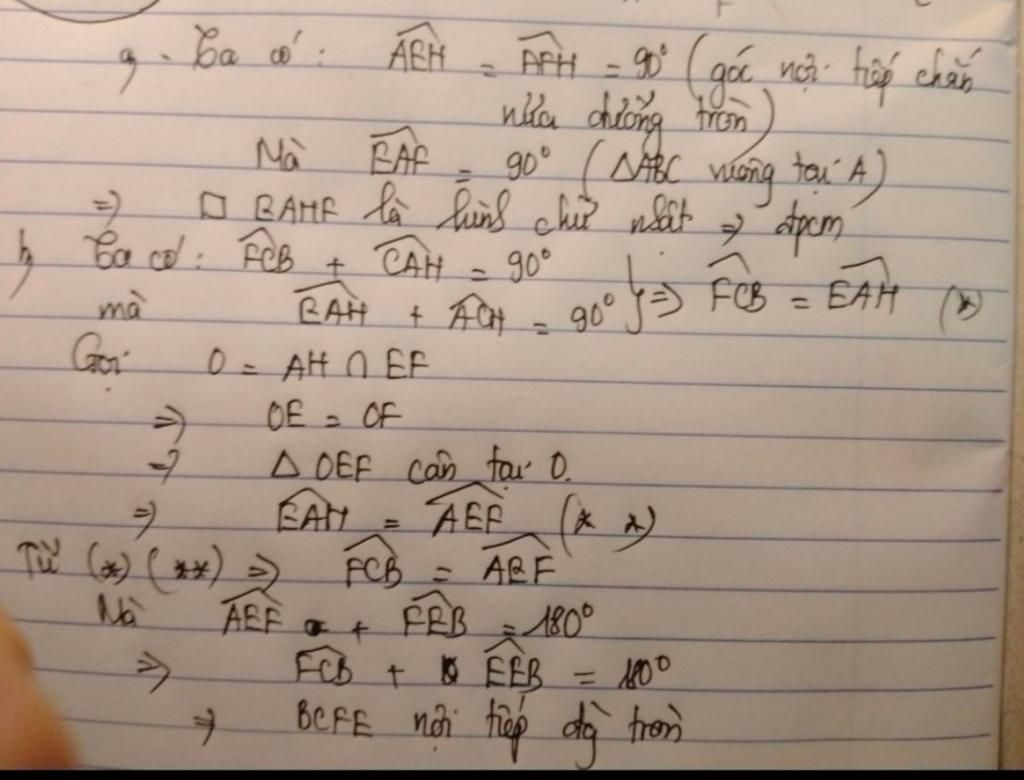 a. Ta có: AEH = AFH = 90° (góc nội tiếp chắn
nửa đường tròn)
Mà EAF = 90° (△ABC vuông tại A)
=> □ EAHF là hình chữ nhật => đpcm
b, Ta có: FCB + CAH = 90°
mà EAH + ACH = 90° } => FCB = EAH (*)
Gọi O = AH ∩ EF
=> OE = OF
=> △ OEF cân tại O.
=> EAH = AEF (**)
Từ (*) (**) => FCB = AEF
Mà AEF + FEB = 180°
=> FCB + FEB = 180°
=> BCFE nội tiếp đg tròn